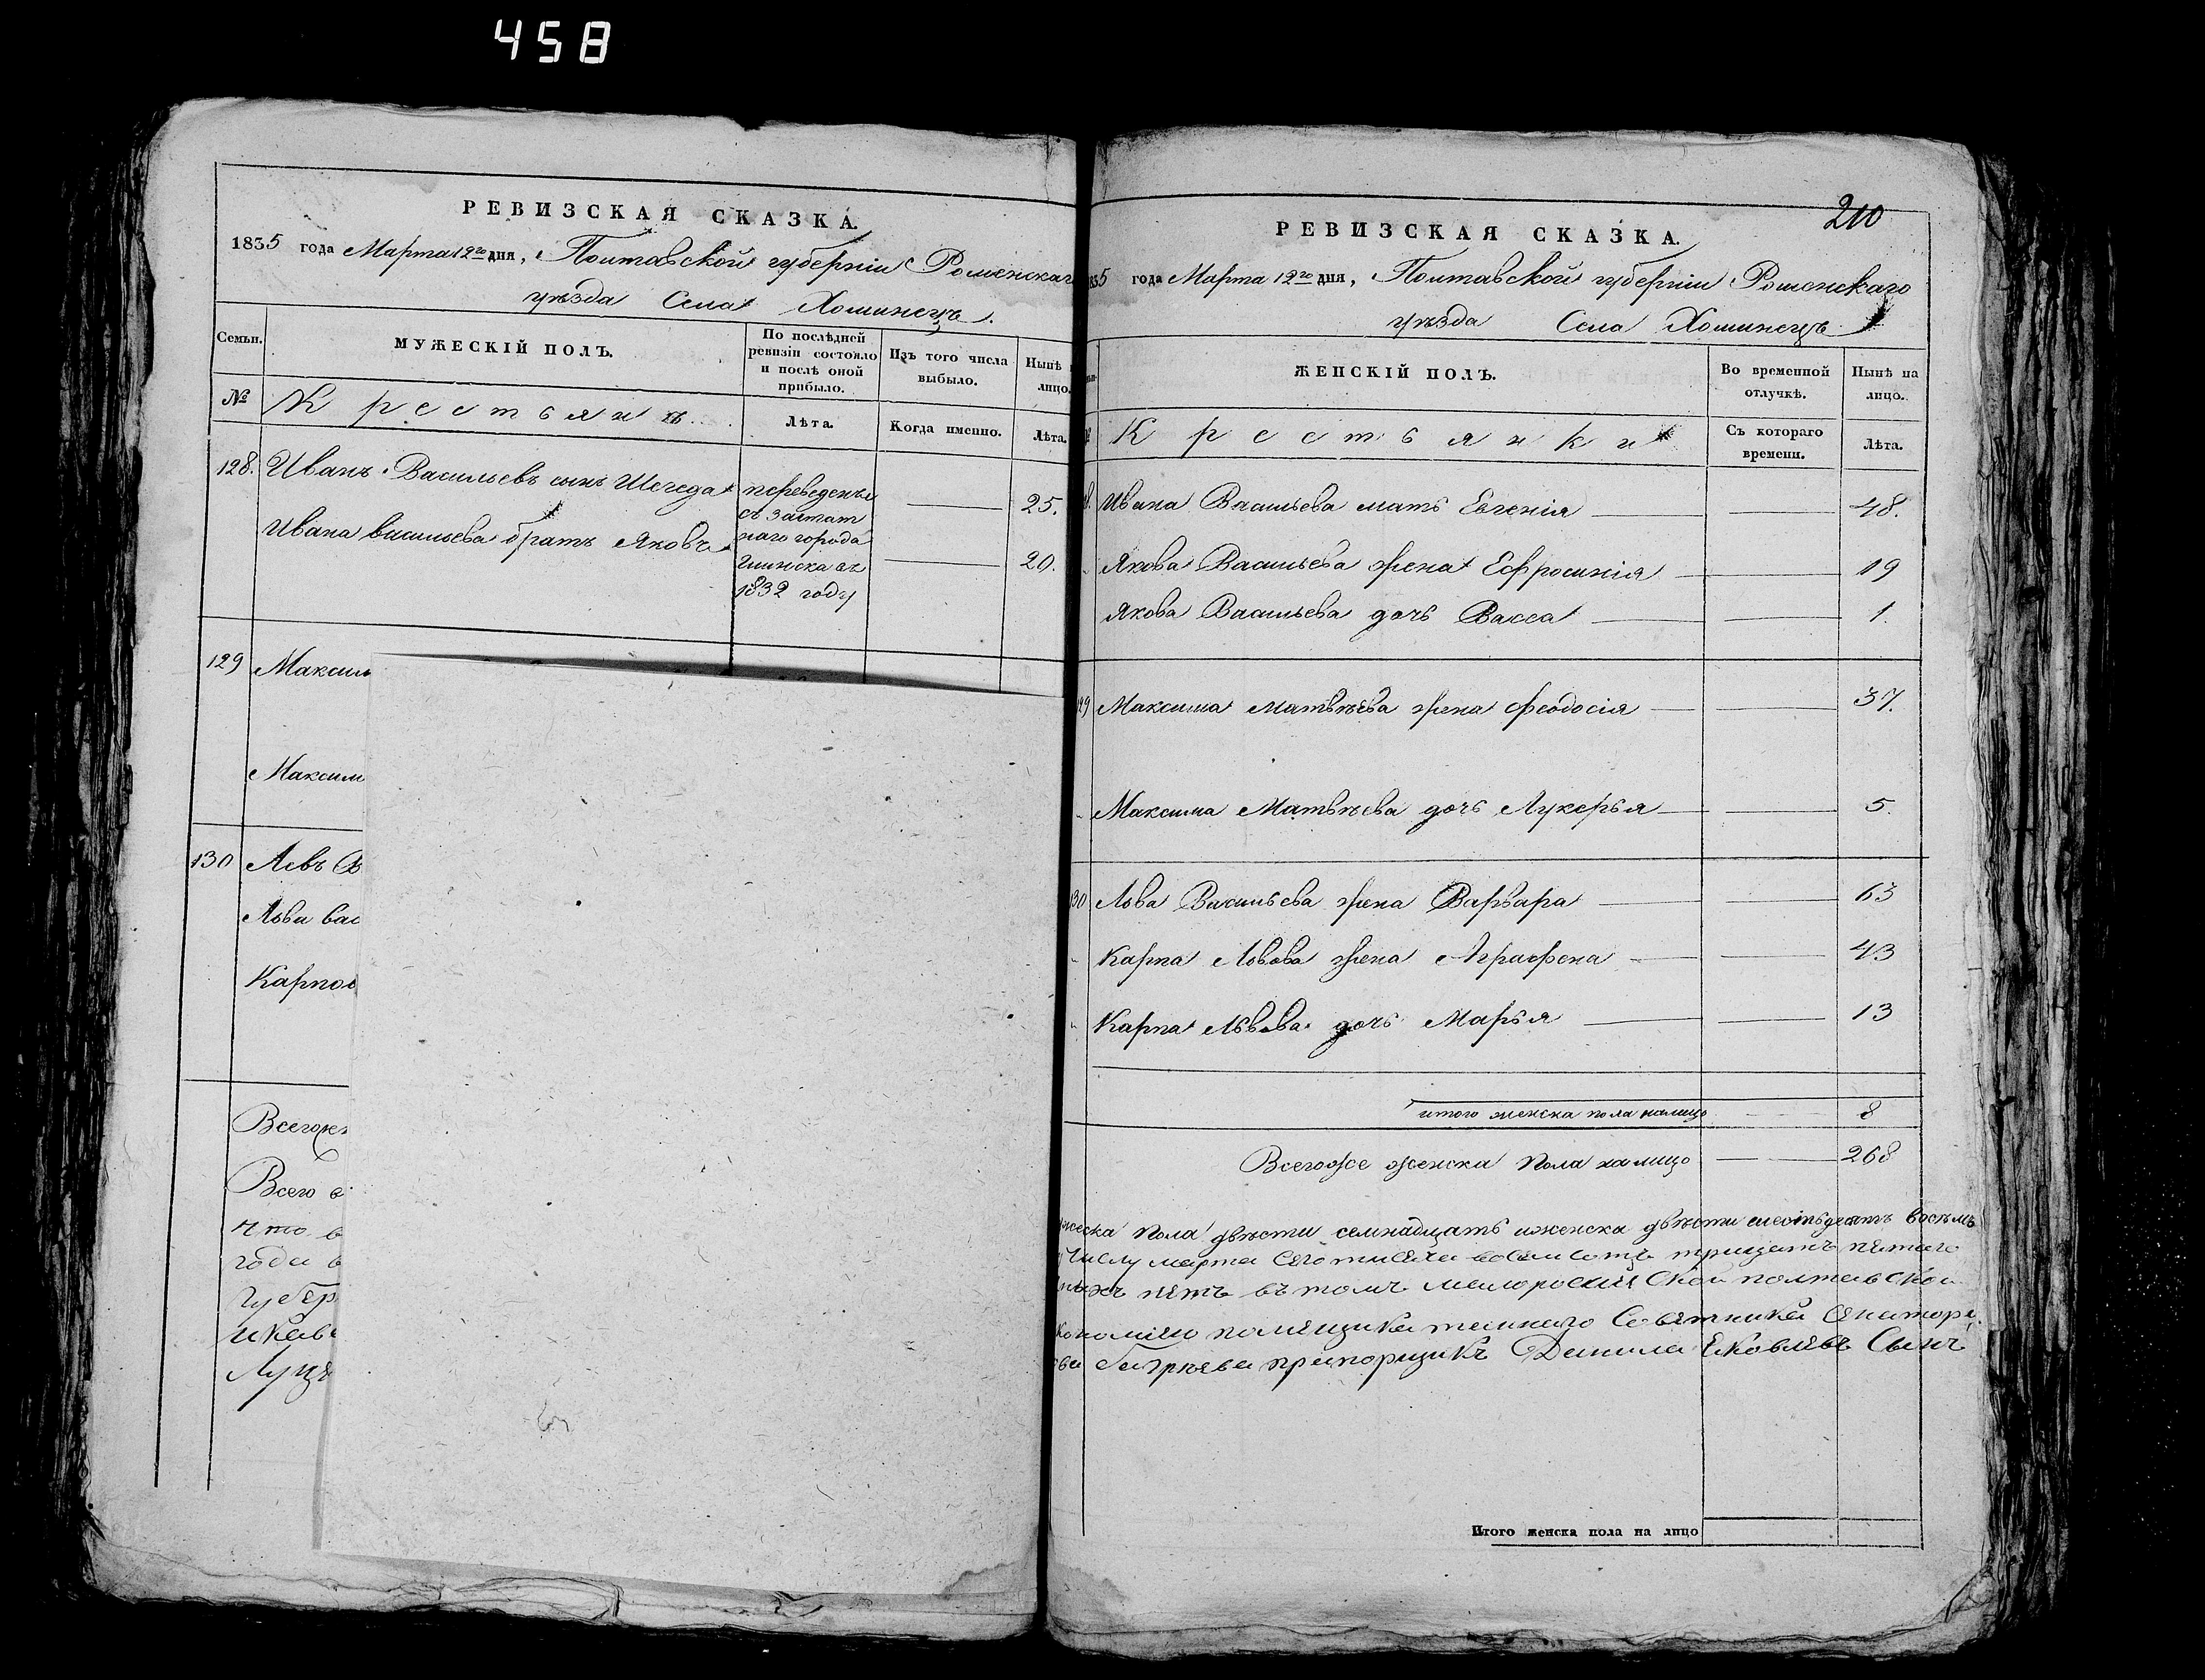 458
РЕВИЗСКАЯ СКАЗКА.
1835 года Марта 12го дня, Полтавской губерніи Роменскаго
уѣзда Села Хоминецъ.
Семьи.
МУЖЕСКІЙ ПОЛЪ.
По послѣдней ревизіи состояло и послѣ оной прибыло.
Изъ того числа выбыло.
Нынѣ
лицо.
№
Крестьянъ
Лѣта.
Когда именно.
Лѣта.
128. Иванъ Васильевъ сынъ Шегеда 25.
Ивана васильева братъ Яковъ 20.
переведены
съ заштат
наго города
Глинска въ
1832 году
129 Максим
Максим
130 Левъ В
Льва вас
Карпов
Всегоже
Всего в
что в
года в
Губер
Луце
210
РЕВИЗСКАЯ СКАЗКА.
1835 года Марта 12го дня, Полтавской губерніи Роменскаго
уѣзда Села Хоминецъ
ЖЕНСКІЙ ПОЛЪ.
Во временной отлучкѣ.
Нынѣ на лицо.
Крестьянки
Съ котораго времени.
Лѣта.
Ивана Васильева мать Евгенія 48.
Якова Васильева жена Ефросинія 19
Якова Васильева дочь Васса 1.
129 Максима Матвѣева жена Феодосія 37.
Максима Матвѣева дочь Лукерья 5.
130 Льва Васильева жена Варвара 63
Карпа Львова жена Аграфена 43
Карпа Львова дочь Марья 13
итого женска пола налицо 8
Всегоже женска пола налицо 268
жеска пола двѣсти семнадцать иженска двѣсти шестьдесятъ восѣмъ
числу марта сего тысяча восемъ сотъ тридцать пятаго
нѣтъ въ томъ малоросійской полтавской
помѣщика тайнаго Совѣтника Сенатора
прапорщикъ Данила Яковлевъ Сынъ
Итого женска пола на лицо